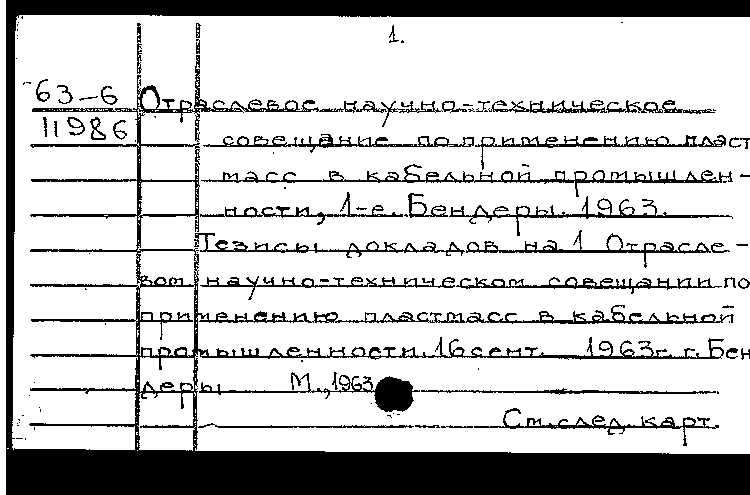 1.
63-6 Отраслевое научно-техническое
11986 совещание по применению пласт
масс в кабельной промышлен-
ности, 1-е. Бендеры. 1963.
Тезисы докладов на 1 Отрасле-
вом научно-техническом совещании по
применению пластмасс в кабельной
промышленности. 16 сент. 1963г. г. Бен
деры М., 1963
См. след. карт.